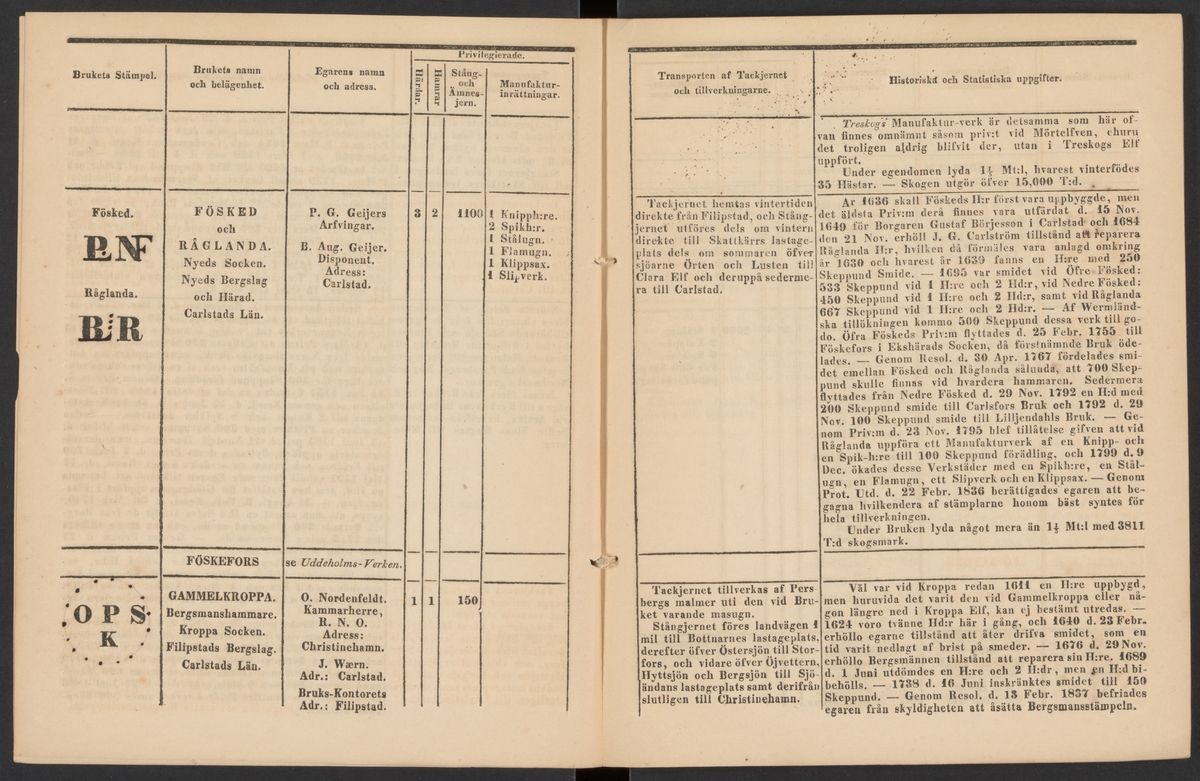 Brukets Stämpel.
Brukets namn
och belägenhet.
Egarens namn
och adress.
Privilegierade.
Härdar.
Hamrar
Stång-
och
Ämnes-
jern.
Manufaktur-
inrättningar.
Fösked.
Råglanda.
B:R
FÖSKED
och
RÅGLANDA.
Nyeds Socken.
Nyeds Bergslag
och Härad.
Carlstads Län.
P. G. Geijers
Arfvingar.
B. Aug. Geijer.
Disponent.
Adress:
Carlstad.
3 2 1100
1 Knipph:re.
2 Spikh:r.
1 Stålugn.
1 Flamugn.
1 Klippsax.
1 Slipverk.
FÖSKEFORS
se Uddeholms-Verken.
O P S
K
GAMMELKROPPA.
Bergsmanshammare.
Kroppa Socken.
Filipstads Bergslag.
Carlstads Län.
O. Nordenfeldt.
Kammarherre,
R. N. O.
Adress:
Christinehamn.
J. Wærn.
Adr.: Carlstad.
Bruks-Kontorets
Adr.: Filipstad.
1 1 150
Transporten af Tackjernet
och tillverkningarne.
Tackjernet hemtas vintertiden
direkte från Filipstad, och Stång-
jernet utföres dels om vintern
direkte till Skattkärrs lastage-
plats dels om sommaren öfver
sjöarne Örten och Lusten till
Clara Elf och deruppå sederme-
ra till Carlstad.
Tackjernet tillverkas af Pers
bergs malmer uti den vid Bru-
ket varande masugn.
Stångjernet föres landvägen 1
mil till Bottnarnes lastageplats,
derefter öfver Östersjön till Stor-
fors, och vidare öfver Öjvettern,
Hyttsjön och Bergsjön till Sjö-
ändans lastageplats samt derifrån
slutligen till Christinehamn.
Historiska och Statistiska uppgifter.
Treskogs Manufaktur-verk är detsamma som här of-
van finnes omnämnt såsom priv:t vid Mörtelfven, ehuru
det troligen aldrig blifvit der, utan i Treskogs Elf
uppfört.
Under egendomen lyda 1½ Mt:l, hvarest vinterfödes
35 Hästar. — Skogen utgör öfver 15,000 T:d.
Ar 1636 skall Föskeds H:r först vara uppbyggde, men
det äldsta Priv:m derå finnes vara utfärdat d. 15 Nov.
1649 för Borgaren Gustaf Börjesson i Carlstad och 1684
den 21 Nov. erhöll J. G. Carlström tillstånd att reparera
Råglanda H:r, hvilken då förmäles vara anlagd omkring
år 1630 och hvarest år 1639 fanns en H:re med 250
Skeppund Smide. — 1695 var smidet vid Öfre Fösked:
533 Skeppund vid 1 H:re och 2 Hd:r, vid Nedre Fösked:
450 Skeppund vid 1 H:re och 2 Hd:r, samt vid Råglanda
667 Skeppund vid 1 H:re och 2 Hd:r. — Af Wermländ-
ska tillökningen kommo 500 Skeppund dessa verk till go-
do. Öfra Föskeds Priv:m flyttades d. 25 Febr. 1755 till
Föskefors i Ekshärads Socken, då förstnämnde Bruk öde-
lades. — Genom Resol. d. 30 Apr. 1767 fördelades smi-
det emellan Fösked och Råglanda sålunda, att 700 Skep-
pund skulle finnas vid hvardera hammaren. Sedermera
flyttades från Nedre Fösked d. 29 Nov. 1792 en H:d med
200 Skeppund smide till Carlsfors Bruk och 1792 d. 29
Nov. 100 Skeppund smide till Lilljendahls Bruk. — Ge-
nom Priv:m d. 23 Nov. 1795 blef tillåtelse gifven att vid
Råglanda uppföra ett Manufakturverk af en Knipp- och
en Spik-h:re till 100 Skeppund förädling, och 1799 d. 9
Dec. ökades desse Verkstäder med en Spikh:re, en Stål-
ugn, en Flamugn, ett Slipverk och en Klippsax. — Genom
Prot. Utd. d. 22 Febr. 1836 berättigades egaren att be-
gagna hvilkendera af stämplarne honom bäst syntes för
hela tillverkningen.
Under Bruken lyda något mera än 1½ Mt:l med 3811
T:d skogsmark.
Väl var vid Kroppa redan 1611 en H:re uppbygd,
men huruvida det varit den vid Gammelkroppa eller nå-
gon längre ned i Kroppa Elf, kan ej bestämt utredas. —
1624 voro tvänne Hd:r här i gång, och 1640 d. 23 Febr.
erhöllo egarne tillstånd att åter drifva smidet, som en
tid varit nedlagt af brist på smeder. — 1676 d. 29 Nov.
erhöllo Bergsmännen tillstånd att reparera sin H:re. 1689
d. 1 Juni utdömdes en H:re och 2 H:dr, men en H:d bi-
behölls. — 1738 d. 16 Juni inskränktes smidet till 150
Skeppund. — Genom Resol. d. 13 Febr. 1837 befriades
egaren från skyldigheten att åsätta Bergsmansstämpeln.